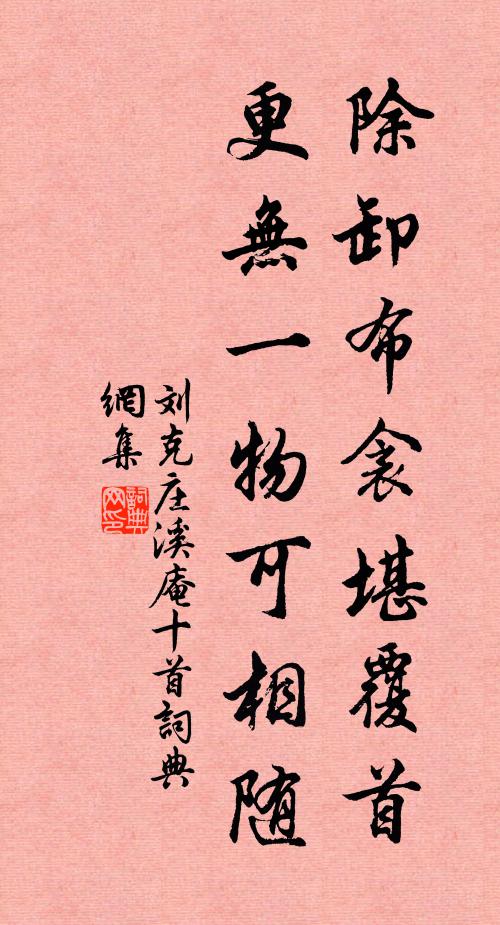 除卸布衾堪覆首
更無一物可相随
刘克庄溪庵十首詞典
網集
詞典
网印